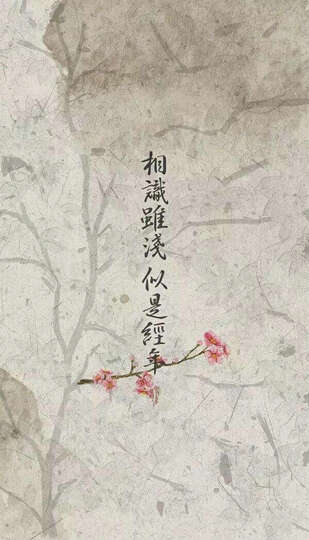 相識雖淺似是經年